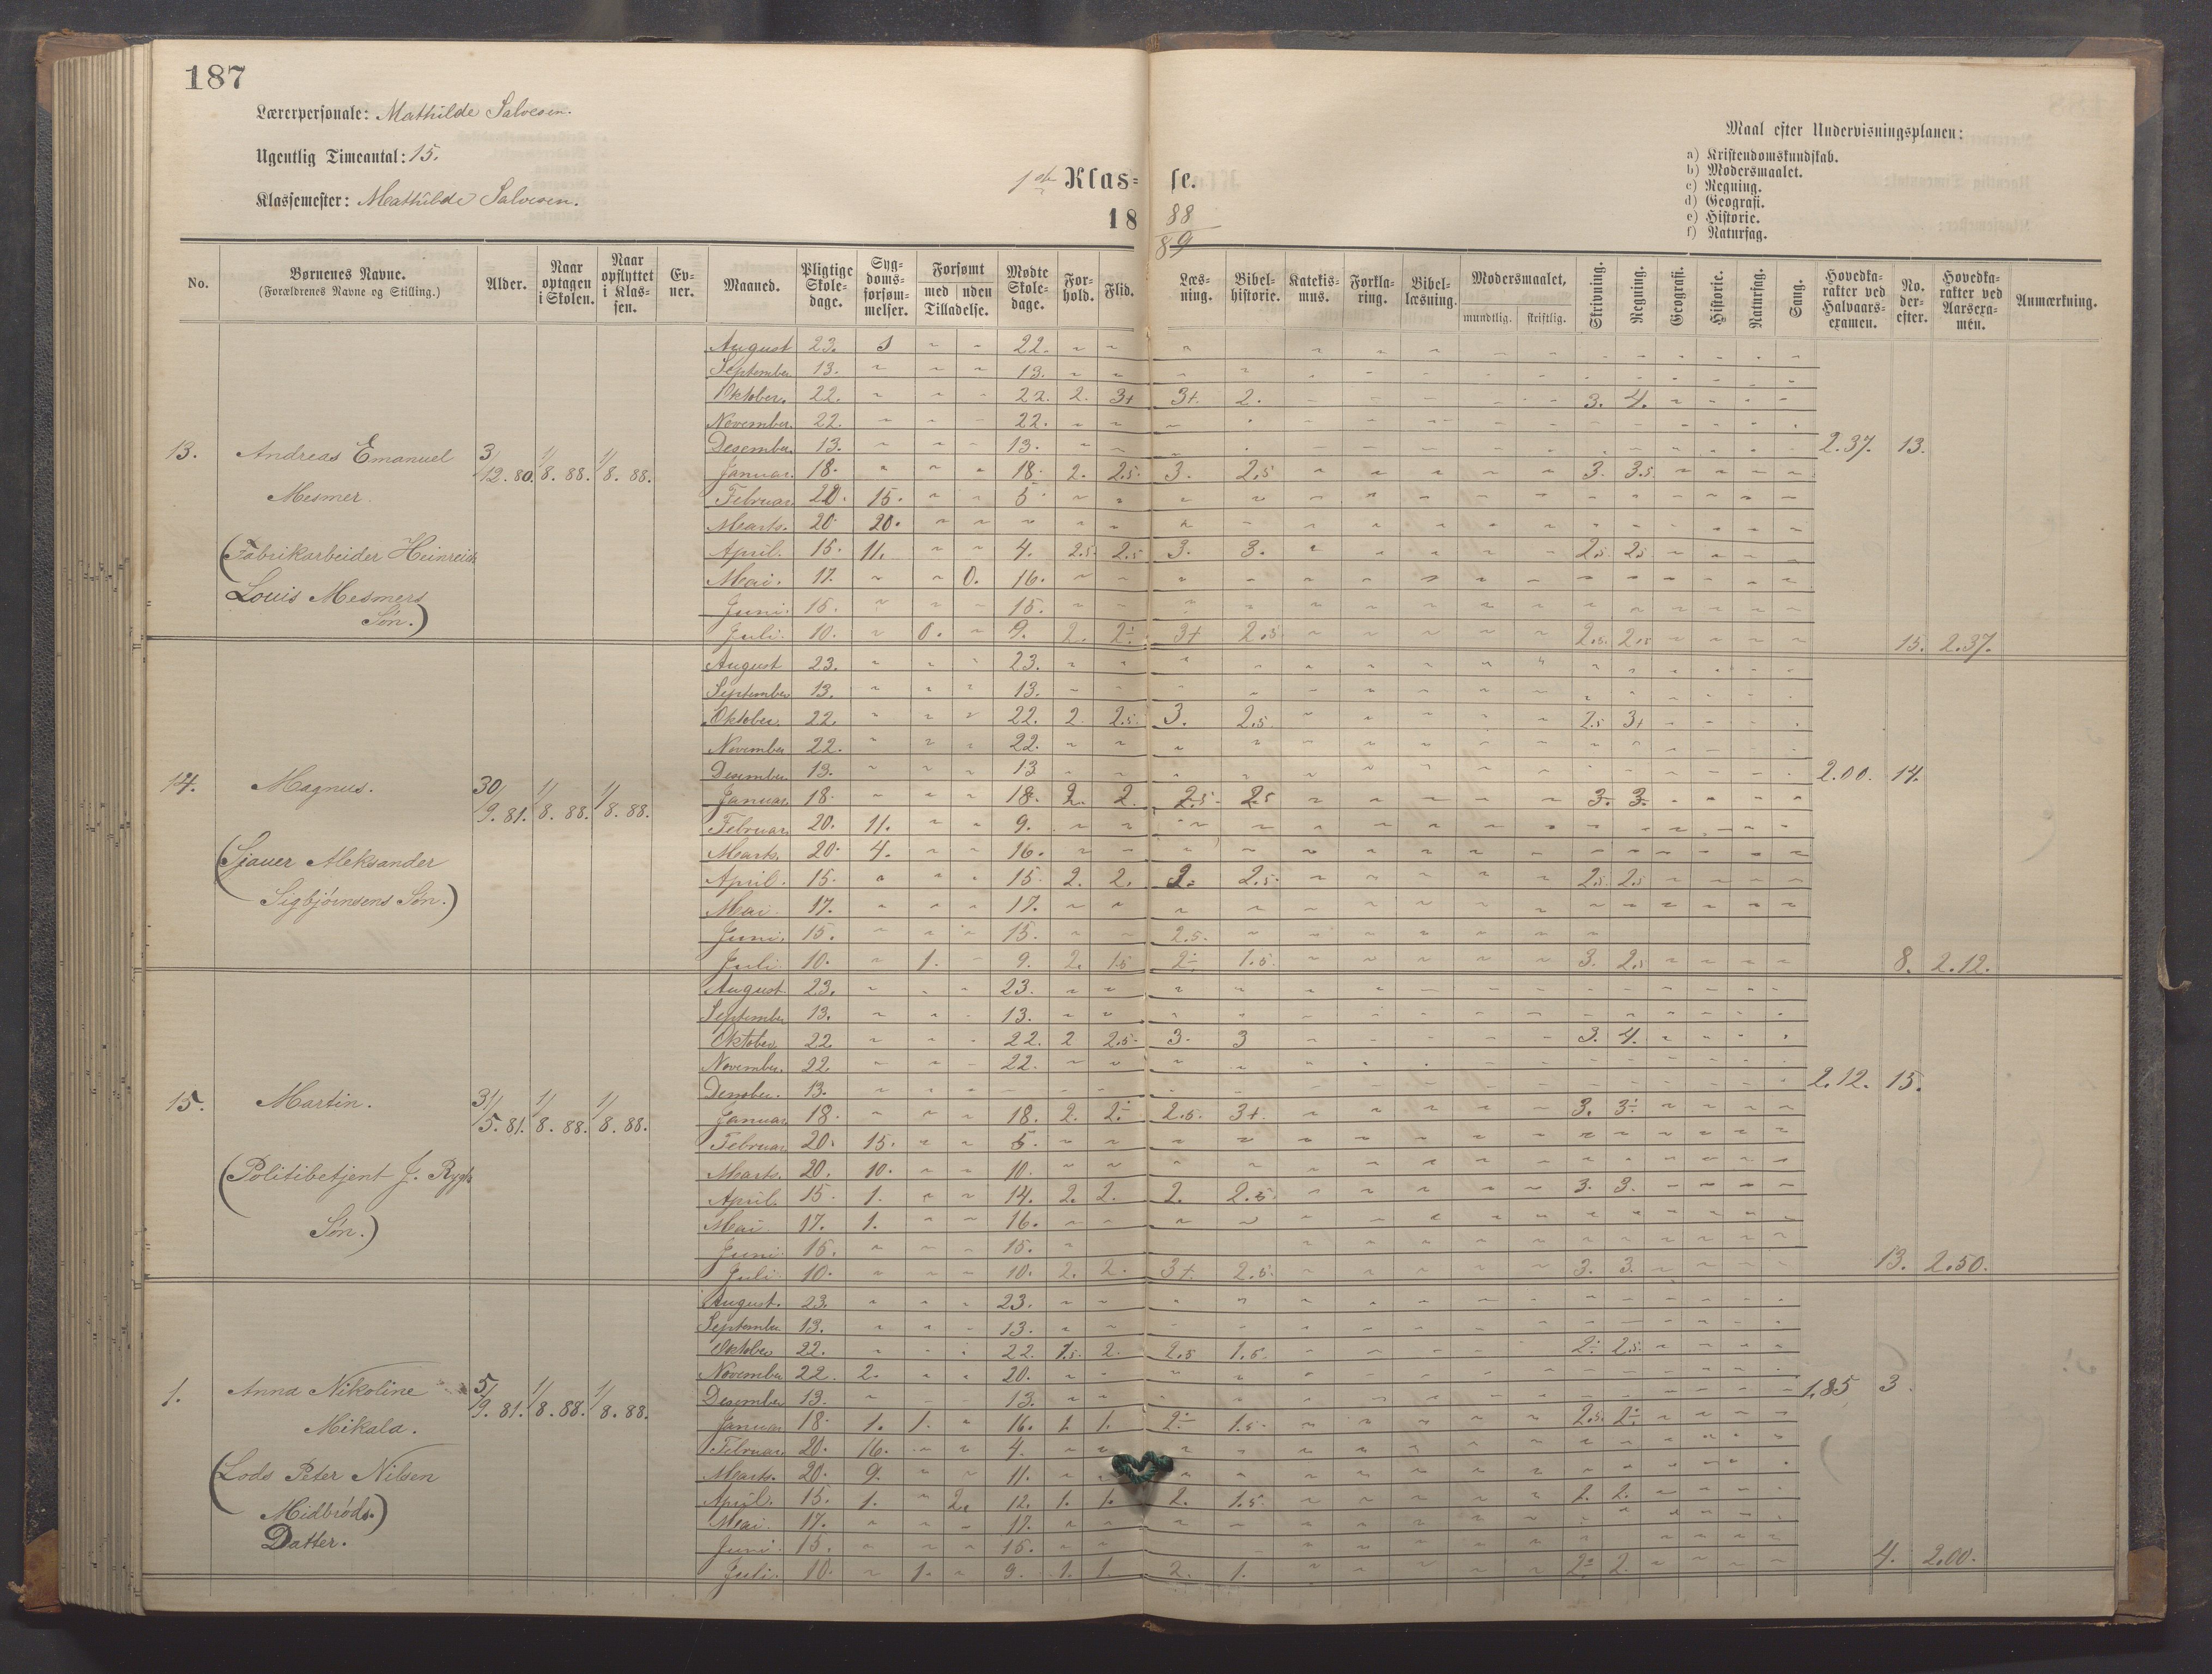 187
Lærerpersonale: Mathilde Salvesen.
Ugentlig Timeantal: 15.
Klassemester: Mathilde Salvesen.
1ste Klas= se.
18 88/89
Maal efter Undervisningsplanen:
a) Kristendomskundskab.
b) Modersmaalet.
c) Regning.
d) Geografi.
e) Historie.
f) Naturfag.
No. | Børnenes Navne. (Forældrenes Navne og Stilling.) | Alder. | Naar optagen i Skolen. | Naar opflyttet i Klas=sen. | Ev=ner. | Maaned. | Pligtige Skole=dage. | Syg=doms=forsøm=melser. | Forsømt med uden Tilladelse. | Mødte Skole=dage. | For=hold. | Flid. | Læs=ning. | Bibel=historie. | Katekis=mus. | Forkla=ring. | Bibel=læsning. | Modersmaalet, mundtlig. skriftlig. | Skrivning. | Regning. | Geografi. | Historie. | Naturfag. | Sang. | Hovedka=rakter ved Halvaars=examen. | No. der=efter. | Hovedka=rakter ved Aarsexa=men. | Anmærkning.
13. Andreas Emanuel Mesmer. 3/12. 80. 1/8. 88. 1/8. 88.
(Fabrikarbeider Heinreich
Louis Mesmers
Søn.)
August 23. 1 22.
September 13. 13.
Oktober. 22. 22. 2. 3+ 3+. 2. 3. 4.
November. 22. 22.
Desember. 13. 13. 2.37. 13.
Januar. 18. 18. 2. 2.5. 3. 2.5 3. 3.5.
Februar. 20. 15. 5.
Marts. 20. 20.
April. 15. 11. 4. 2.5. 2.5 3. 3. 2.5 2.5
Mai. 17. 0. 16.
Juni. 15. 15.
Juli. 10. 0. 9. 2. 2÷. 3+ 2.5 2.5. 2.5 15. 2.37.
14. Magnus. 30/9. 81. 1/8. 88. 1/8. 88.
(Sjauer Aleksander
Sigbjørnsens Søn.)
August 23. 23.
September 13. 13.
Oktober. 22. 22. 2. 2.5. 3. 2.5. 2.5 3+
November 22. 22.
Desember 13. 13 2.00. 14.
Januar. 18. 18. 2. 2. 2.5. 2.5 3. 3.
Februar. 20. 11. 9.
Marts. 20. 4. 16.
April. 15. 15. 2. 2. 2. 2.5. 2.5. 2.5
Mai. 17. 17.
Juni. 15. 15. 2.5.
Juli. 10. 1. 9. 2. 1.5 2÷ 1.5. 3. 2.5 8. 2.12.
15. Martin. 31/5. 81. 1/8. 88. 1/8. 88.
(Politibetjent J. Rygh
Søn.)
August. 23. 23.
September 13. 13.
Oktober. 22 22. 2 2.5. 3. 3 3. 4.
November. 22. 22.
Desember. 13. 2.12. 15.
Januar 18. 18. 2. 2÷ 2.5. 3+. 3. 3÷
Februar 20. 15. 5.
Marts. 20. 10. 10.
April. 15. 1. 14. 2. 2. 2. 2.5. 3. 3.
Mai. 17. 1. 16.
Juni. 15. 15.
Juli. 10. 10. 2. 2. 3+. 2.5. 3. 3. 13. 2.50.
1. Anna Nikoline Mikala. 5/9. 81. 1/8. 88. 1/8. 88.
(Lods Peter Nilsen
Midbrøds.)
Datter.
August. 23. 23.
September. 13. 13.
Oktober 22. 22. 1.5. 2. 2.5 1.5. 2÷ 2.5.
November 22. 2. 20.
Desember 13. 13. 1.85 3.
Januar 18. 1. 1. 16. 1. 1. 2÷ 1.5. 2.5. 2÷
Februar. 20. 16. 4.
Marts. 20. 9. 11.
April. 15. 1. 2. 12. 1. 1. 2. 1.5. 2. 2.
Mai. 17. 17.
Juni. 15. 15.
Juli. 10. 1. 9. 1. 1. 2. 1. 2÷ 2. 4. 2.00.